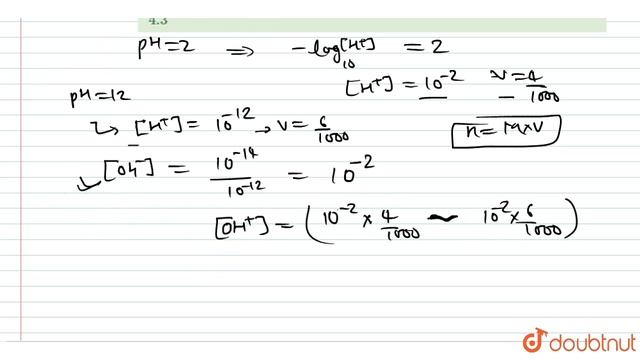 4.3
pH=2 ⟹ -log₁₀[H⁺] = 2
[H⁺] = 10⁻² V=4/1000
pH=12
↳ [H⁺] = 10⁻¹² → V= 6/1000
n= M×V
[OH⁻] = 10⁻¹⁴/10⁻¹² = 10⁻²
[OH⁺] = (10⁻² × 4/1000 ~ 10⁻² × 6/1000)
doubtnut